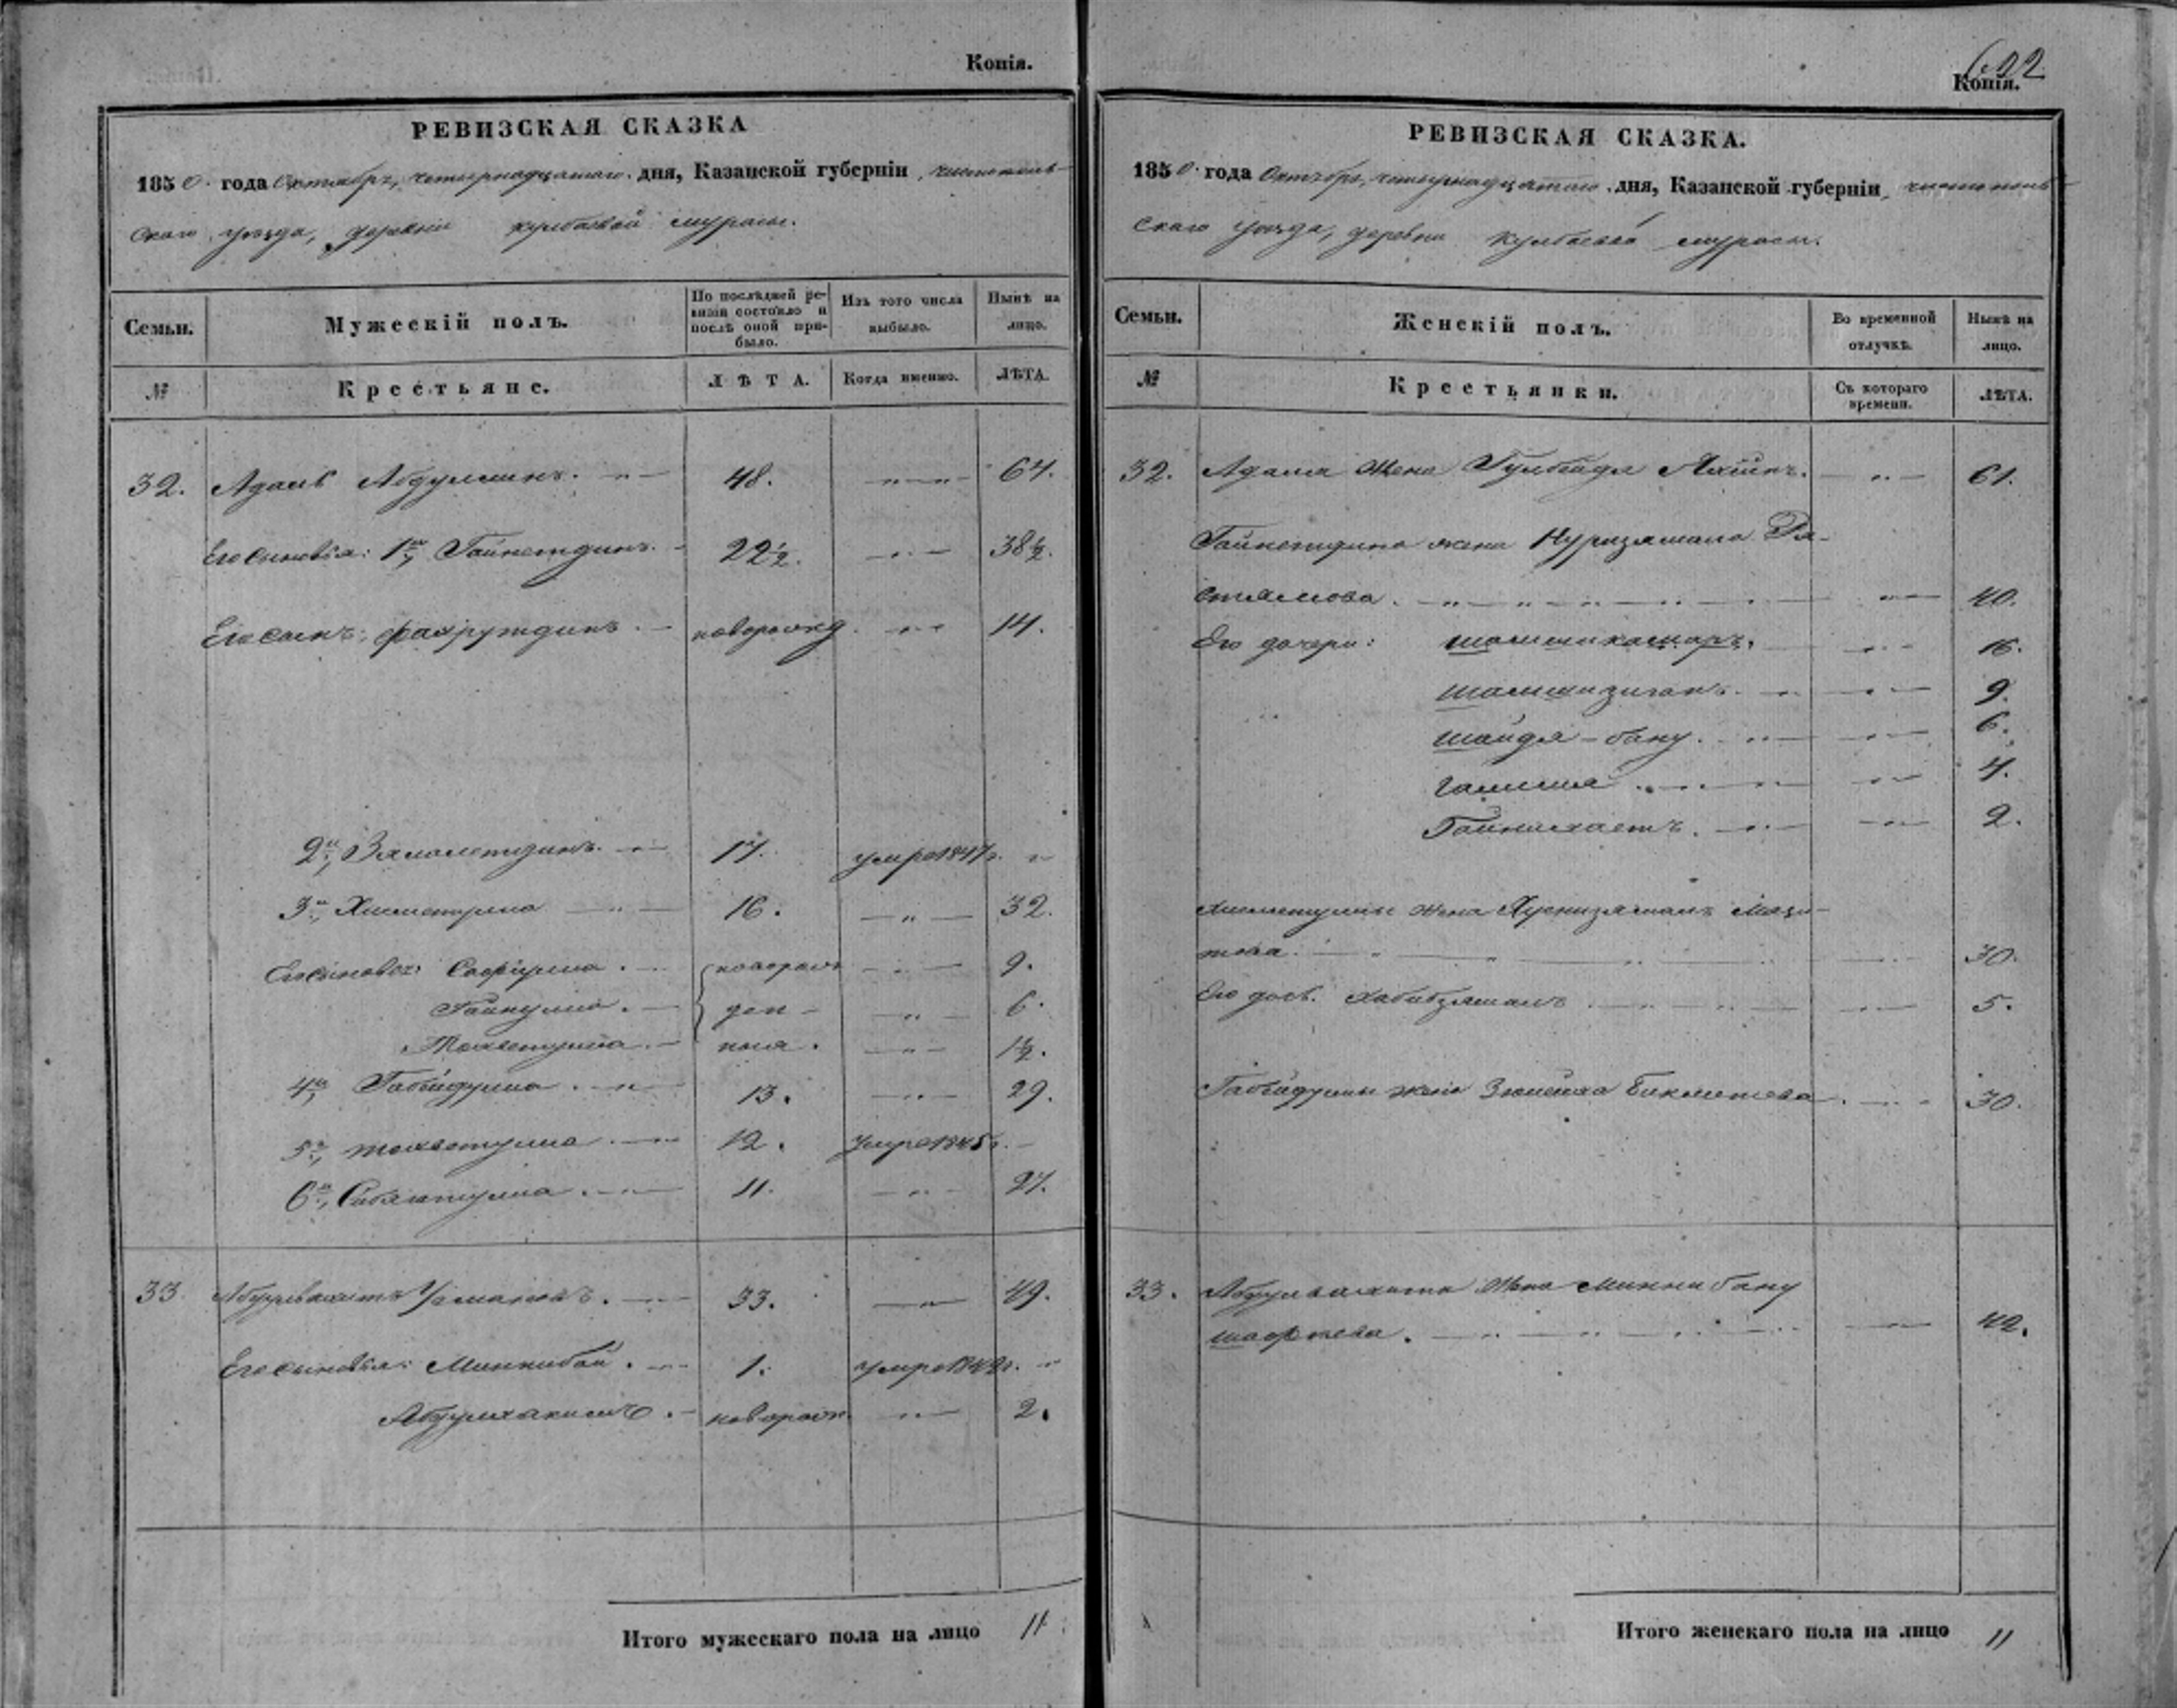 Копія.
РЕВИЗСКАЯ СКАЗКА
1850. года Октября, четырнадцатаго дня, Казанской губерніи, чистополь-
скаго уезда, деревни кулбаевой мурасы.
Семьи.
Мужескій полъ.
По послѣдней ре-
визіи состояло и
послѣ оной при-
было.
Изъ того числа
выбыло.
Нынѣ на
лицо.
№
Крестьяне.
ЛѢТА.
Когда именно.
ЛѢТА.
32. Адамъ Абдуллинъ. 48. 64.
Его сыновья: 1й, Гайнетдинъ. 22½. 38½.
Его сынъ: Фахрутдинъ. новорожд. 14.
2й, 17. умре 1847г.
3й, Хисметулла 16. 32.
Его сыновья: Сафіулла. новорож 9.
Гайнулла. ден 6.
Тохветулла. ныя. 1½.
4й, Габейдулла. 13. 29.
5й, тохветулла 12. умре 1845г.
6й, 11. 27.
33. Абдулвахитъ Усмановъ. 33. 49.
Его сыновья: Миннибай. 1. умре 1842г.
Абдулхакимъ. новорож. 2.
Итого мужескаго пола на лицо 11.
622
Копія.
РЕВИЗСКАЯ СКАЗКА.
1850. года Октября, четырнадцатаго дня, Казанской губерніи, чистополь-
скаго уезда, деревни кулбаевой мурасы.
Семьи.
Женскій полъ.
Во временной
отлучкѣ.
Нынѣ на
лицо.
№
Крестьянки.
Съ котораго
времени.
ЛѢТА.
32. Адама жена 61.
Гайнетдина жена Нуризямала Ра-
стямова. 40.
Его дочери: шамсикамаръ. 16.
9.
шайдя-бану. 6.
4.
2.
Хисметуллы жена Хуснизямалъ Мази-
това. 30.
Его дочь. Хабибзямалъ 5.
Габейдуллы жена Зюлейха Бикметева 30.
33. Абдулвахита жена Минни бану
шафкева. 42.
Итого женскаго пола на лицо 11